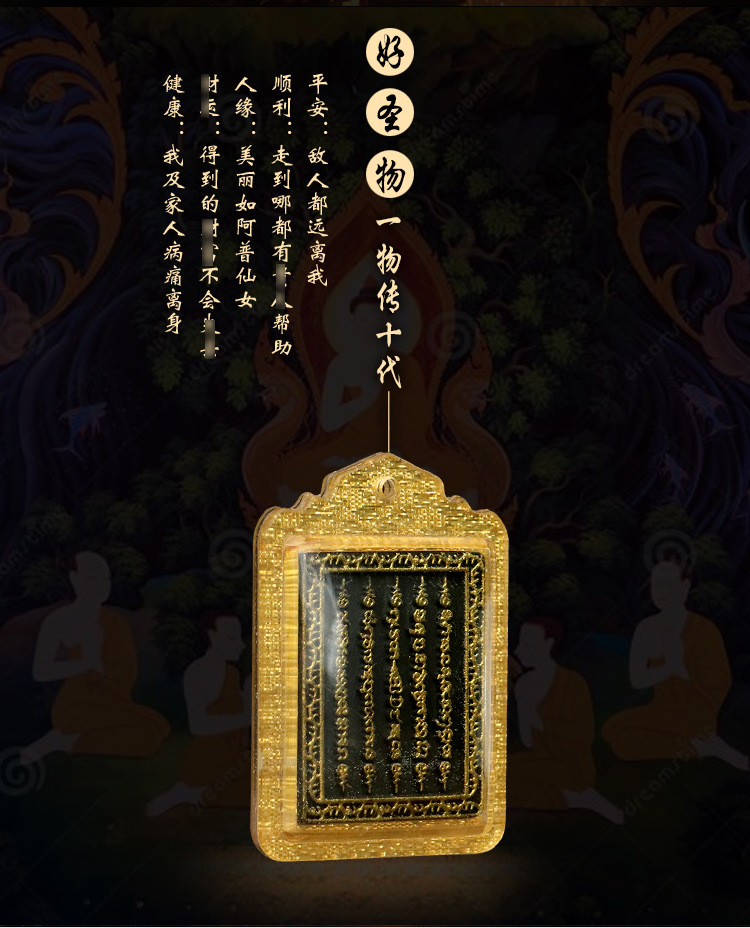 好圣物一物传十代
平安：敌人都远离我
顺利：走到哪都有人帮助
人缘：美丽如阿普仙女
财运：得到的不会
健康：我及家人病痛离身